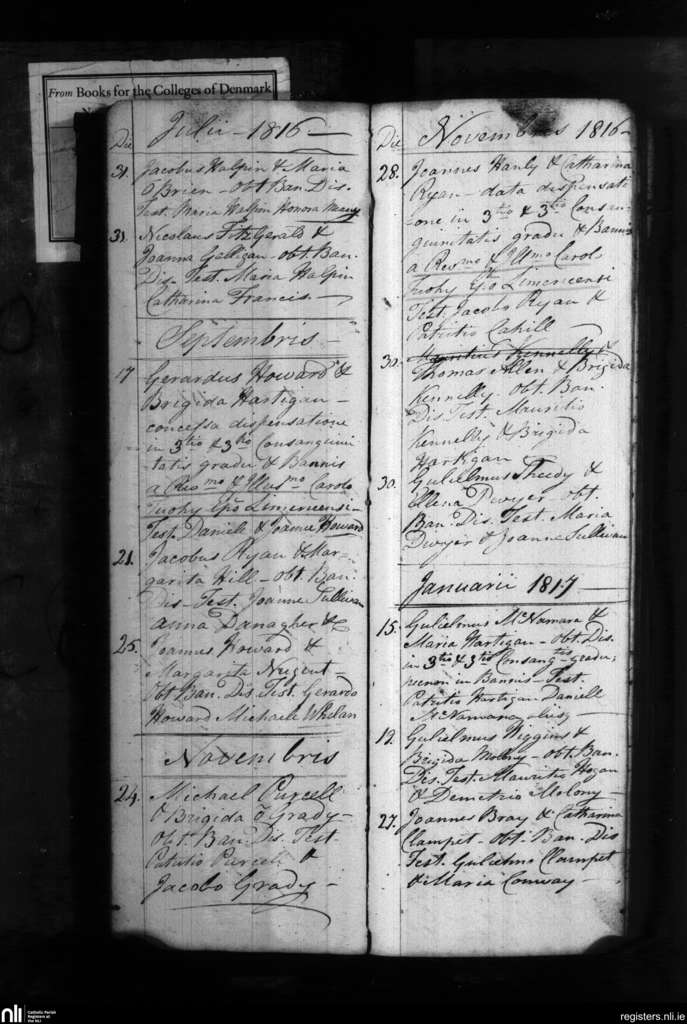 From Books for the Colleges of Denmark
Die Julii - 1816 -
31. Jacobus Halpin & Maria
O Brien - obt. Ban. Dis.
Test. Maria Halpin Honora
31. Nicolaus FitzGerald &
Joanna Galligan - obt. Ban.
Dis. Test. Maria Halpin
Catharina Francis -
Septembris -
17 Gerardus Howard &
Brigida Hartigan -
concessa dispensatione
in 3tio & 3tio Consanguini
tatis gradu & Bannis
a Revmo & Illusmo Carolo
Tuohy Epo Limericensi -
Test. Daniele & Joanna Howard
21. Jacobus Ryan & Mar-
garita Hill - obt. Ban.
Dis - Test. Joanne Sullivan
Anna Danagher &c
25. Joannes Howard &
Margarita Nugent -
obt Ban. Dis. Test. Gerardo
Howard Michaele Whelan
Novembris
24. Michael Purcell
& Brigida O Grady -
obt. Ban. Dis. Test
Patritio Purcell &
Jacobo Grady -
Die Novembris 1816 -
28. Joannes Hanly & Catharina
Ryan - data dispensati
one in 3tio & 3tio Consan-
guinitatis gradu & Bannis
a Revmo & Illmo Carolo
Tuohy Epo Limericensi
Test. Jacobo Ryan &
Patritio Cahill
30. Mauritius Kennelly &
Thomas Allen & Brigida
Kennelly. obt. Ban.
Dis. Test. Mauritio
Kennelly & Brigida
Hartigan
30. Gulielmus Sheedy &
Ellena Dwyer obt.
Ban. Dis. Test. Maria
Dwyer & Joanne Sullivan
Januarii 1817 -
15. Gulielmus McNamara &
Maria Hartigan - obt. Dis.
in 3tio & 3tio Consang-tis gradu,
necnon in Bannis - Test.
Patritio Hartigan Daniell
McNamara
19. Gulielmus Wiggins &
Brigida Molony - obt. Ban.
Dis. Test. Mauritio Hogan
& Demetrio Molony -
27. Joannes Bray & Catharina
Clampet - obt. Ban - Dis
Test. Gulielmo Clampet
& Maria Conway -
nli Catholic Parish
Registers at
the NLI
registers.nli.ie